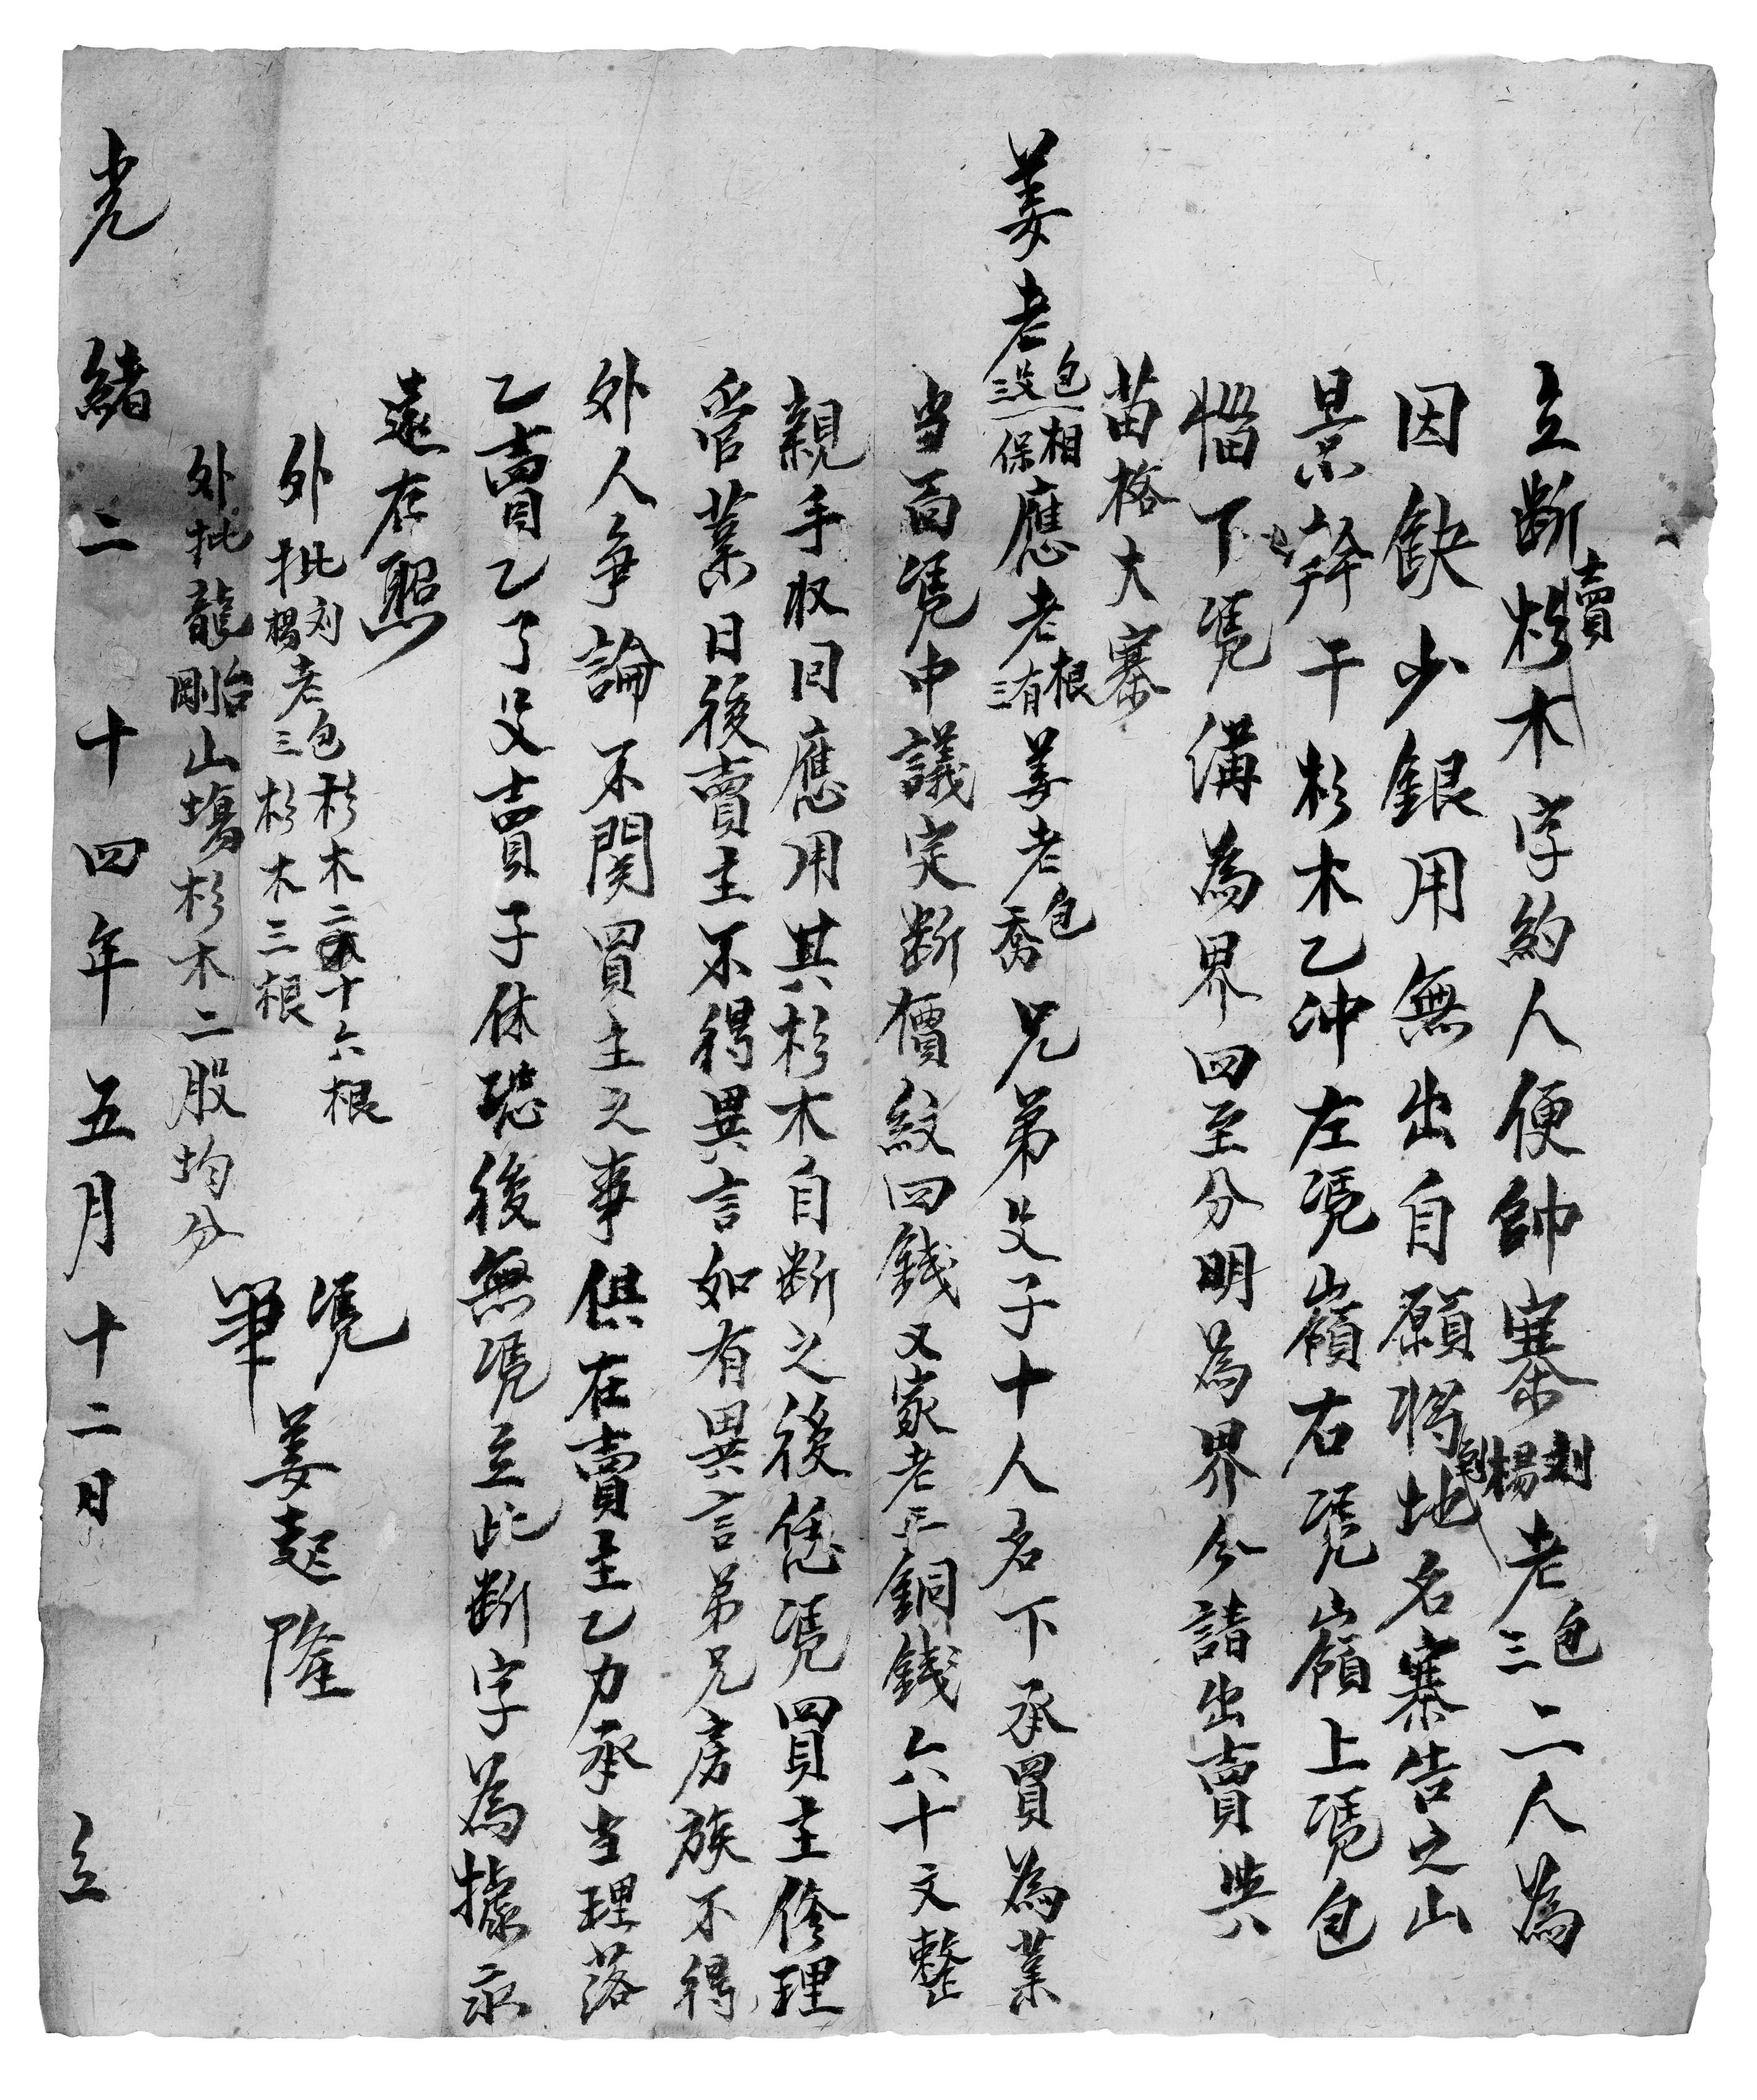 立断賣杉木字約人便帥寨刘楊老包三二人為
因缺少銀用無出自願将地名寨告之山
景幹干杉木乙冲左凴嶺右凴嶺上凴包
惱下凴溝為界四至分明為界今請出賣與
苗格大寨
姜老包没三相保應老根有三姜老包喬兄弟父子十人名下承買為業
当面凴中議定断價紋四錢又家老平銅錢六十文整
親手収回應用其杉木自断之後恁凴買主修理
管業日後賣主不得異言如有異言弟兄房族不得
外人争論不関買主之事俱在賣主乙力承当理落
乙賣乙了父賣子休恐後無凴立此断字為據永
遠存照
外批刘老包杉木二十六根
楊老三杉木三根
外批龍台剛山塲杉木二股均分
凴
筆 姜起隆
光緒二十四年五月十二日 立